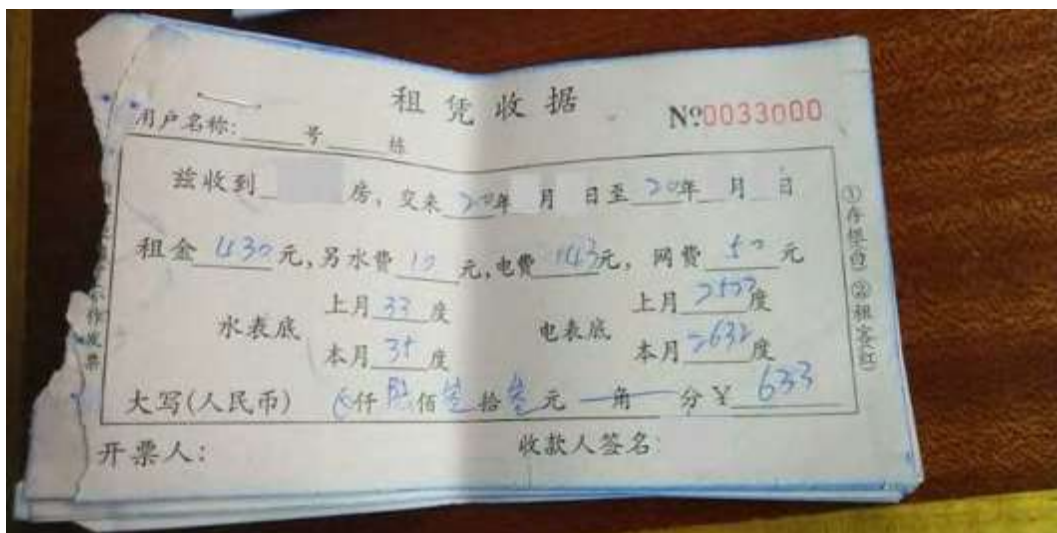 租凭收据
№0033000
用户名称: 号 栋
兹收到 房, 交来 20年 月 日至 20年 月 日
租金 430 元, 另水费 10 元, 电费 143元, 网费 50 元
水表底 上月 33 度 电表底 上月 度
本月 35 度 本月 2632 度
大写(人民币) 仟 陆 佰 叁 拾 叁 元 角 分 ¥ 633
开票人: 收款人签名:
①存根白 ②租客红